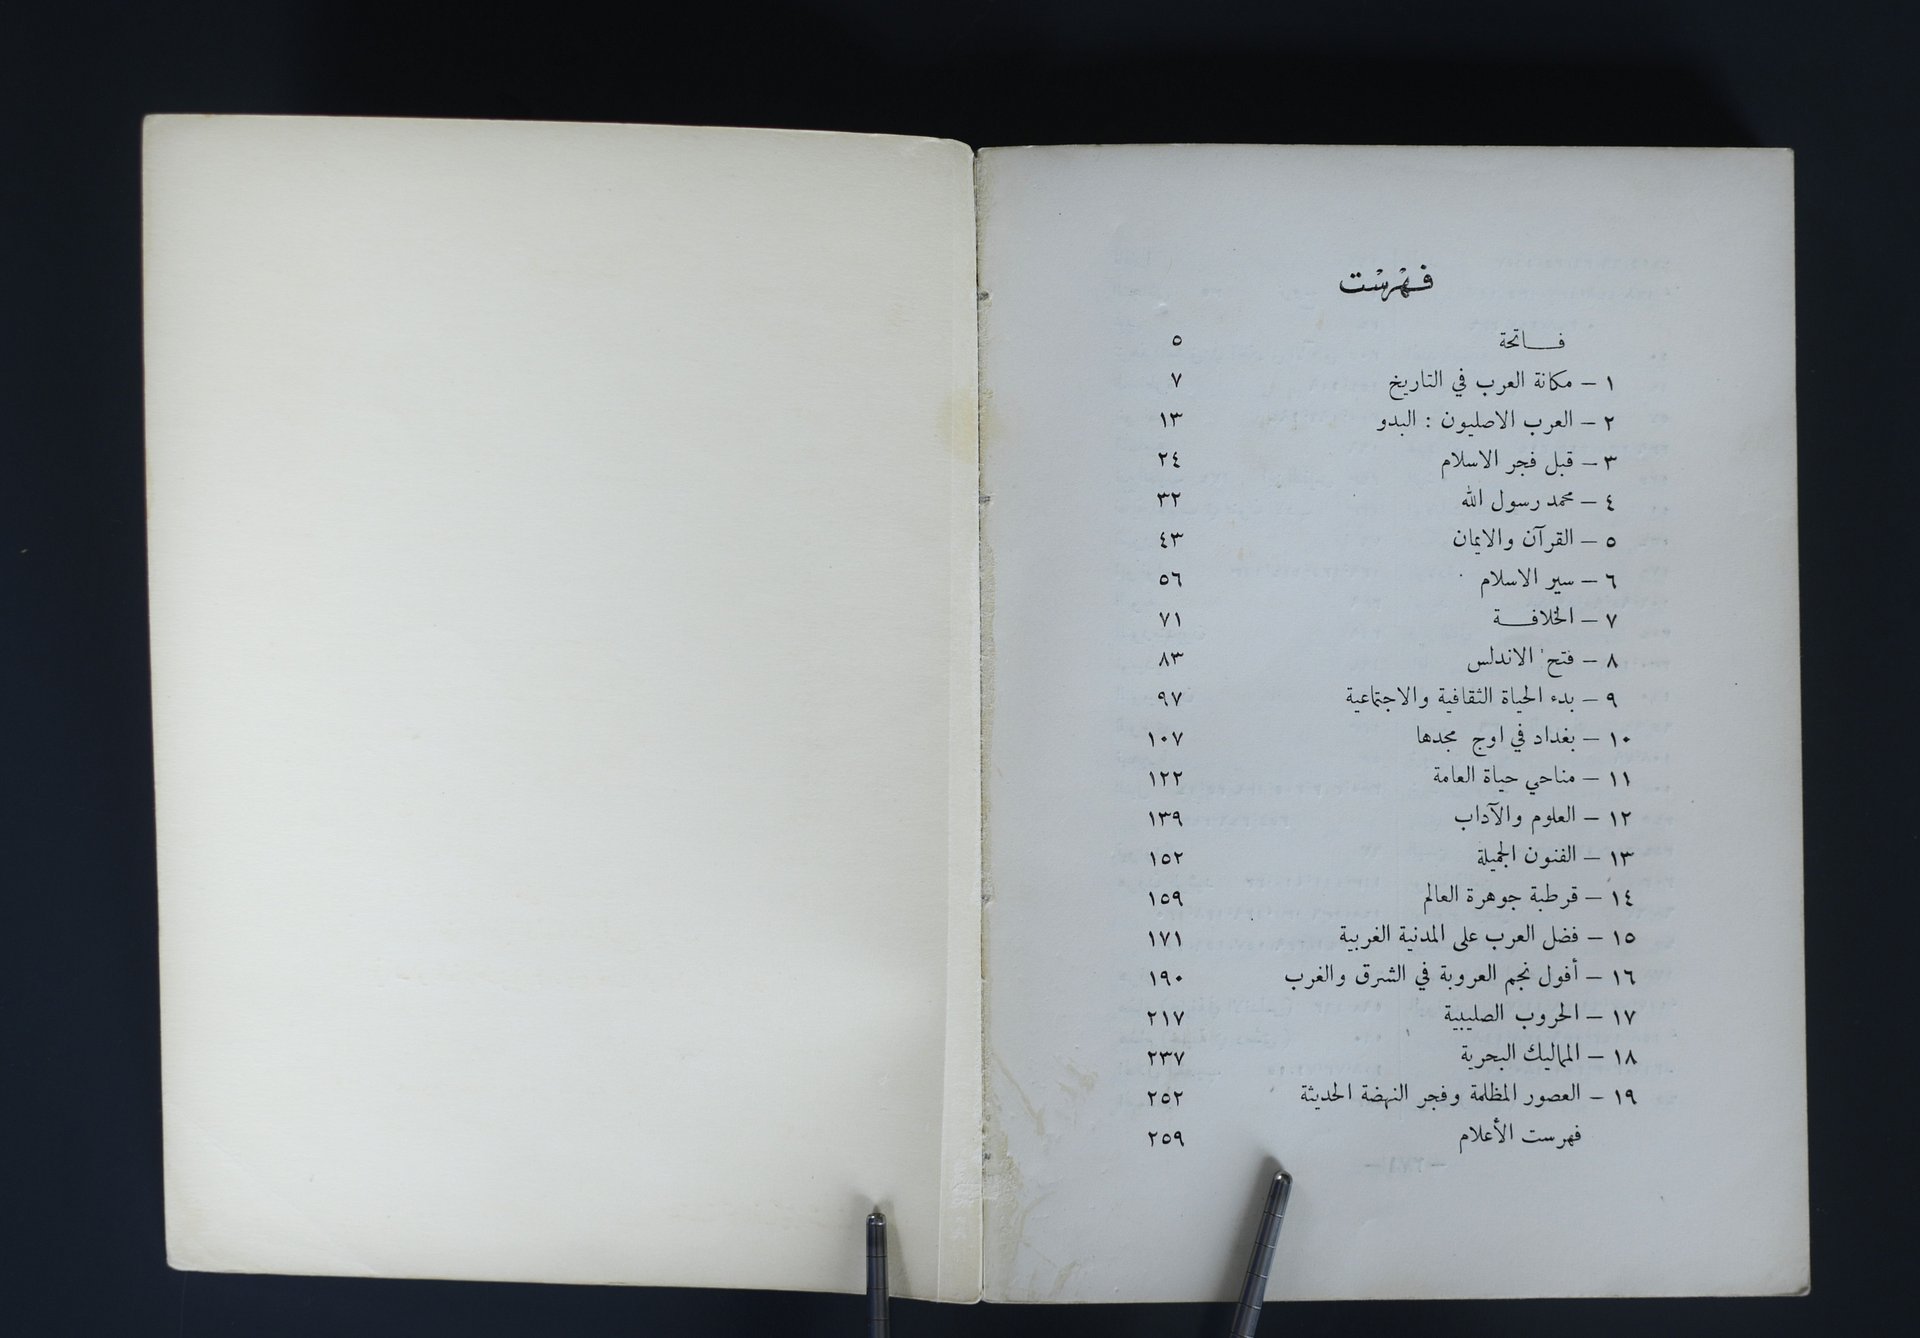 فهْرسْت
فــاتحة ٥
١ – مكانة العرب في التاريخ ٧
٢ – العرب الاصليون : البدو ١٣
٣ – قبل فجر الاسلام ٢٤
٤ – محمد رسول الله ٣٢
٥ – القرآن والايمان ٤٣
٦ – سير الاسلام ٥٦
٧ – الخلافــة ٧١
٨ – فتح الاندلس ٨٣
٩ – بدء الحياة الثقافية والاجتماعية ٩٧
١٠ – بغداد في اوج مجدها ١٠٧
١١ – مناحي حياة العامة ١٢٢
١٢ – العلوم والآداب ١٣٩
١٣ – الفنون الجميلة ١٥٢
١٤ – قرطبة جوهرة العالم ١٥٩
١٥ – فضل العرب على المدنية الغربية ١٧١
١٦ – أفول نجم العروبة في الشرق والغرب ١٩٠
١٧ – الحروب الصليبية ٢١٧
١٨ – المماليك البحرية ٢٣٧
١٩ – العصور المظلمة وفجر النهضة الحديثة ٢٥٢
فهرست الأعلام ٢٥٩